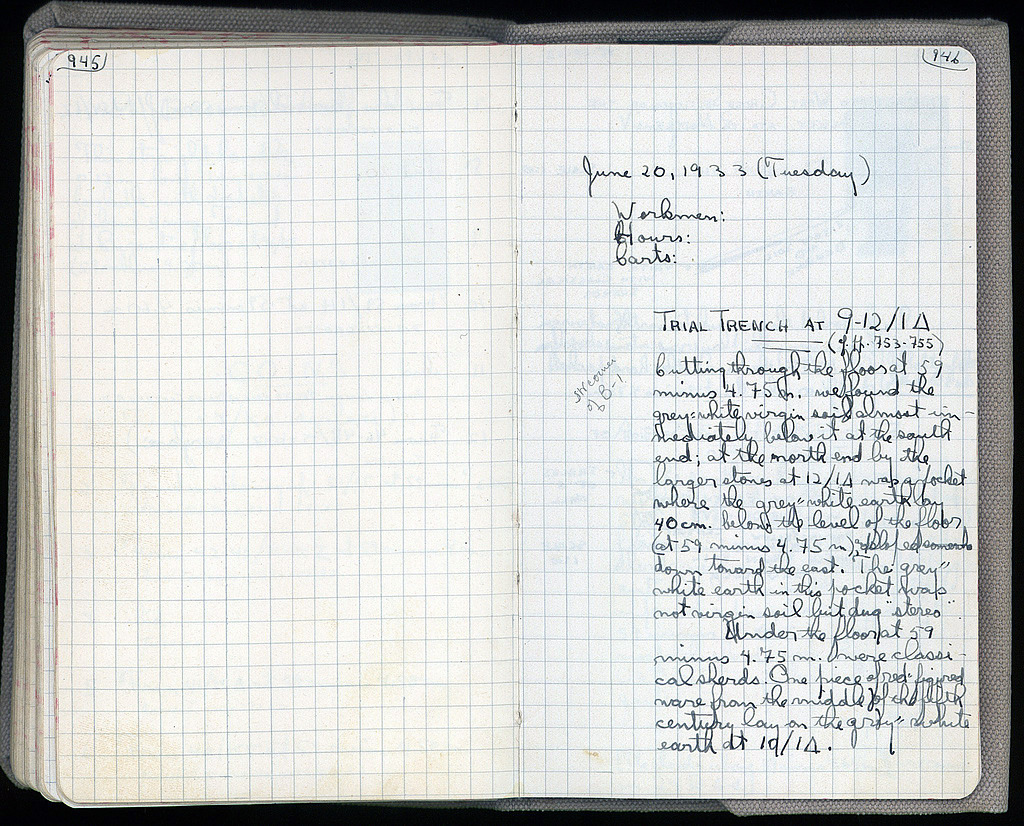 945
946
June 20, 1933 (Tuesday)
Workmen:
Hours:
Carts:
TRIAL TRENCH AT 9-12/ΙΔ
(cf. pp. 753-755)
Cutting through the floor at 59
minus 4.75 m. we found the
grey-white virgin soil almost im-
mediately below it at the south
end; at the north end by the
larger stones at 12/ΙΔ was a pocket
where the grey-white earth lay
40 cm. below the level of the floor
(at 59 minus 4.75 m) sloped
down toward the east. The grey-
white earth in this pocket was
not virgin soil but dug "stereo"
Under the floor at 59
minus 4.75 m. were classi-
cal sherds. One piece of red-figured
ware from the middle of the fifth
century lay on the grey-white
earth at 10/ΙΔ.
corner
of B-1